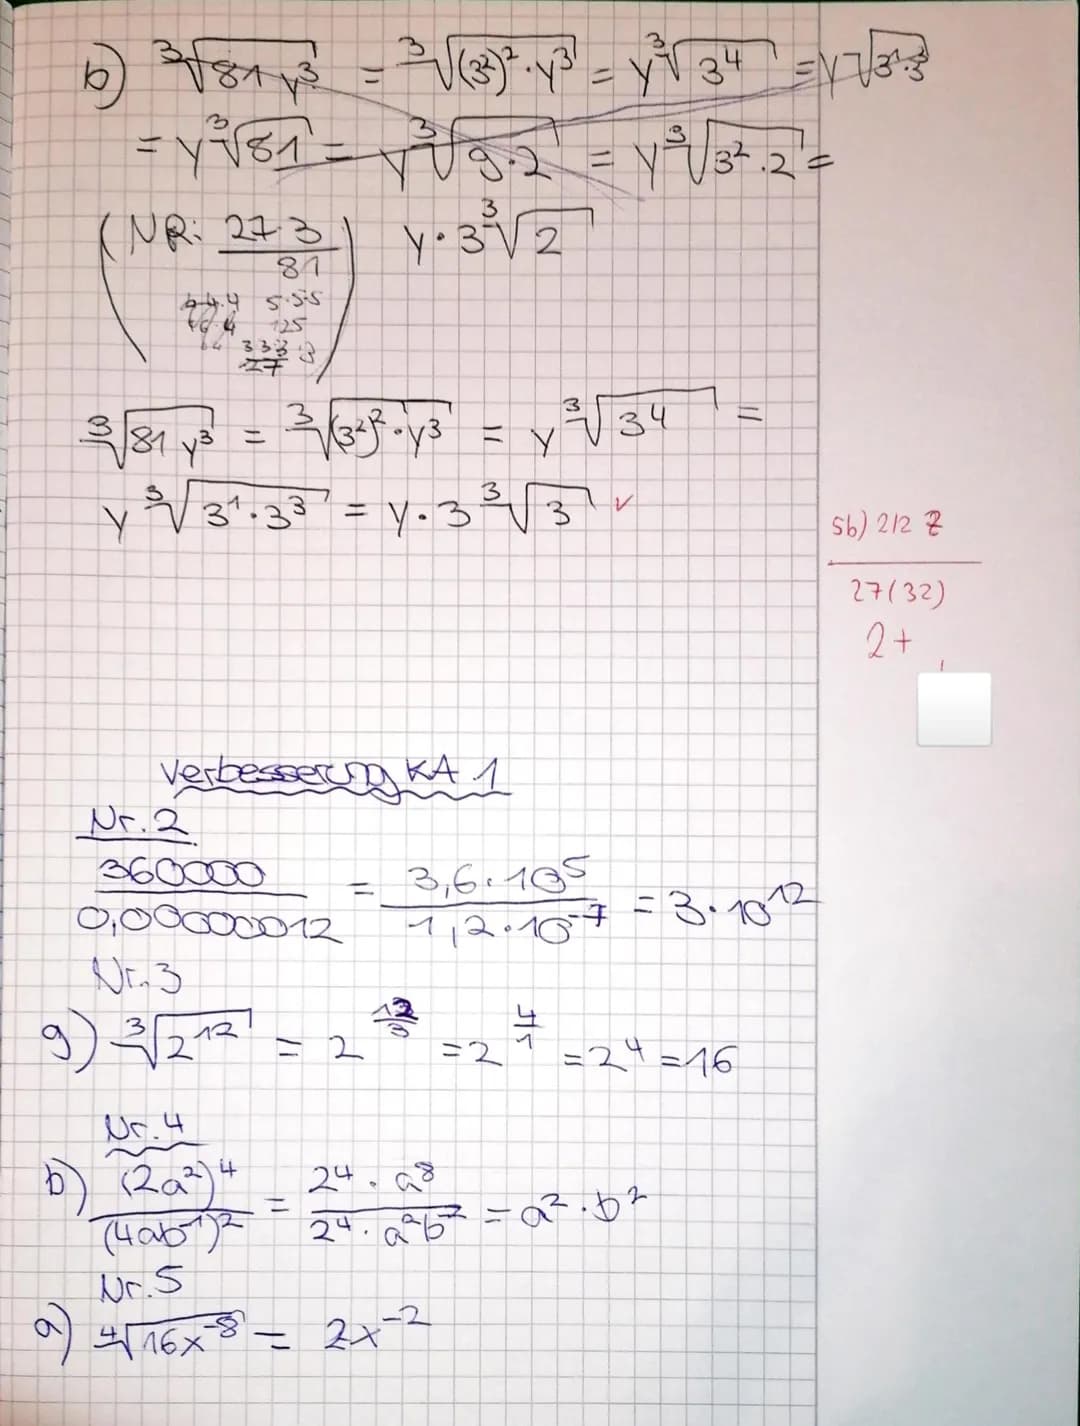 b) ³√(81y³) = ³√((3²)²·y³) = y ³√(3⁴) = y√(3¹·3³)
= y ³√81 = y ³√(9·2) = y ³√(3²·2) =
(NR: 27·3 y·3 ³√2
81
4·4·4 5·5·5
16·4 125
64 3·3·3·3
27)
³√(81y³) = ³√((3²)²·y³) = y ³√(3⁴) =
y ³√(3¹·3³) = y·3 ³√3 ✓
5b) 2/2
27(32)
2+
Verbesserung KA 1
Nr. 2
360000/0,00000012 = (3,6·10⁵)/(1,2·10⁻⁷) = 3·10¹²
Nr. 3
g) ³√(2¹²) = 2^(12/3) = 2^(4/1) = 2⁴ = 16
Nr. 4
b) (2a²)⁴/(4ab⁻¹)² = (2⁴·a⁸)/(2⁴·a²b⁻²) = a²·b²
Nr. 5
a) ⁴√(16x⁻⁸) = 2x⁻²